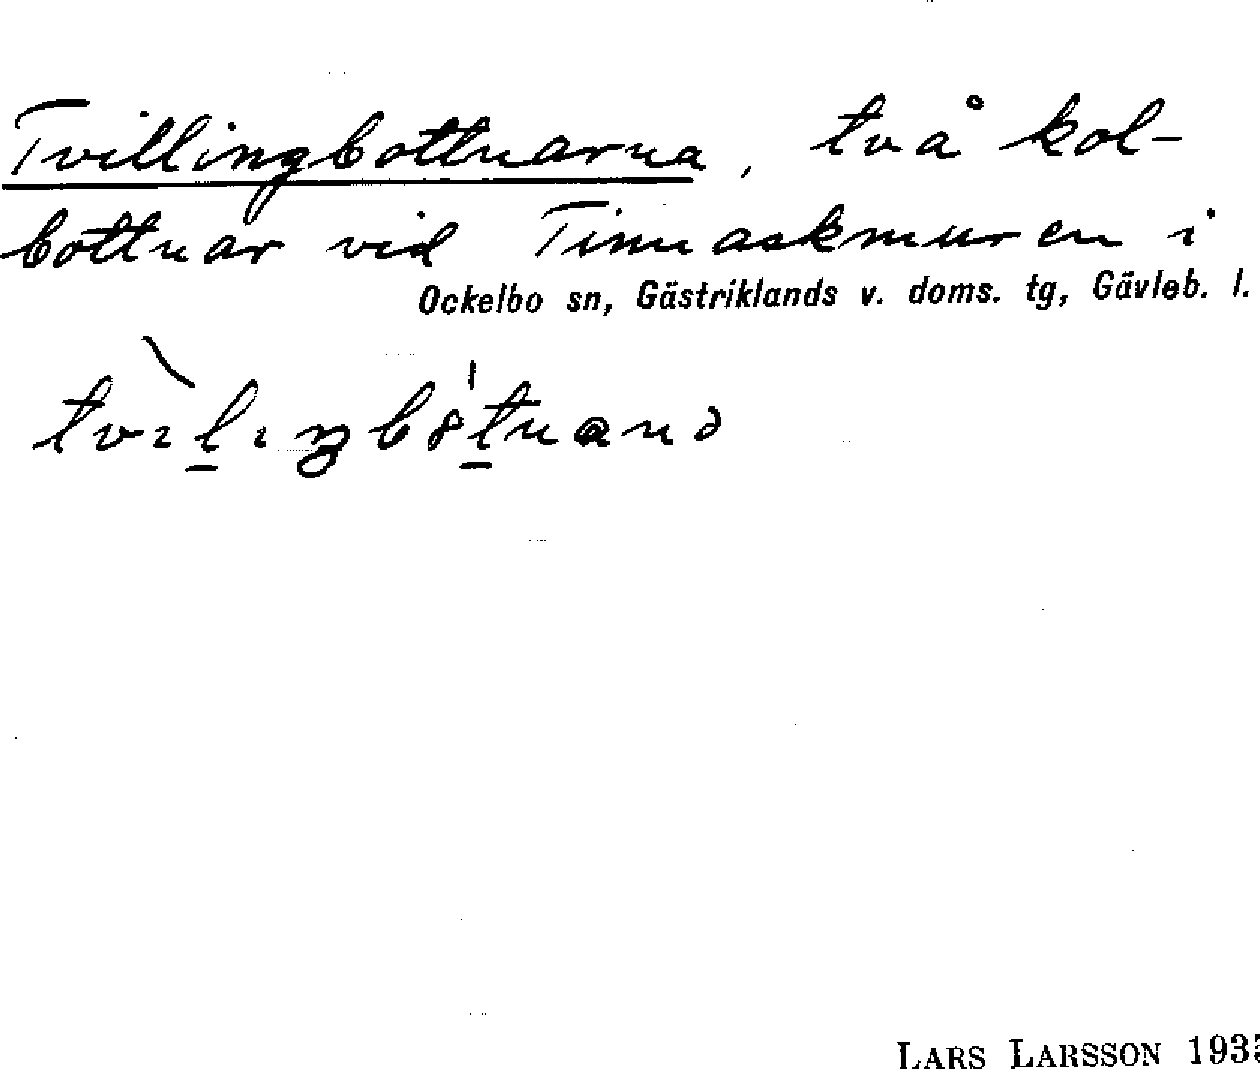 Tvillingbottnarna, två kol-
bottnar vid Timaskmuren i
Ockelbo sn, Gästriklands v. doms. tg, Gävleb. l.
LARS LARSSON